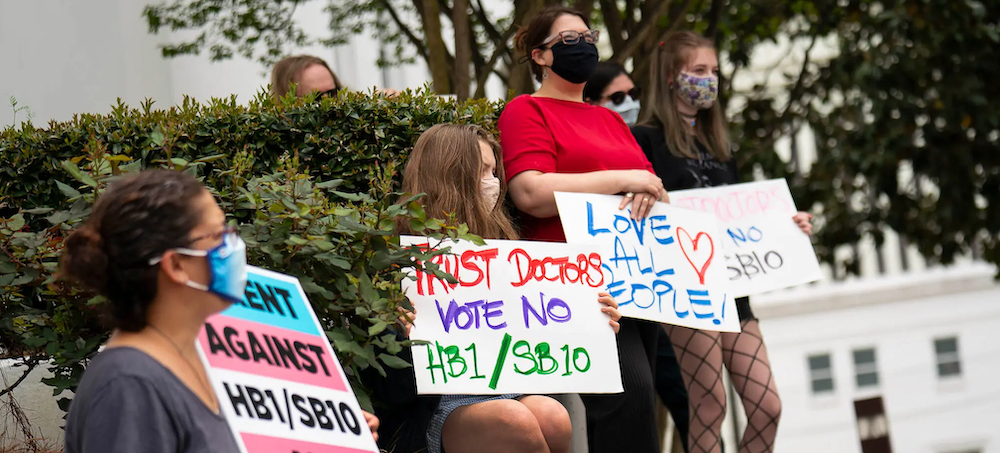 AGAINST
HB1/SB10
TRUST DOCTORS
VOTE NO
HB1/SB10
LOVE
ALL
PEOPLE!
DOCTORS
NO
SB10